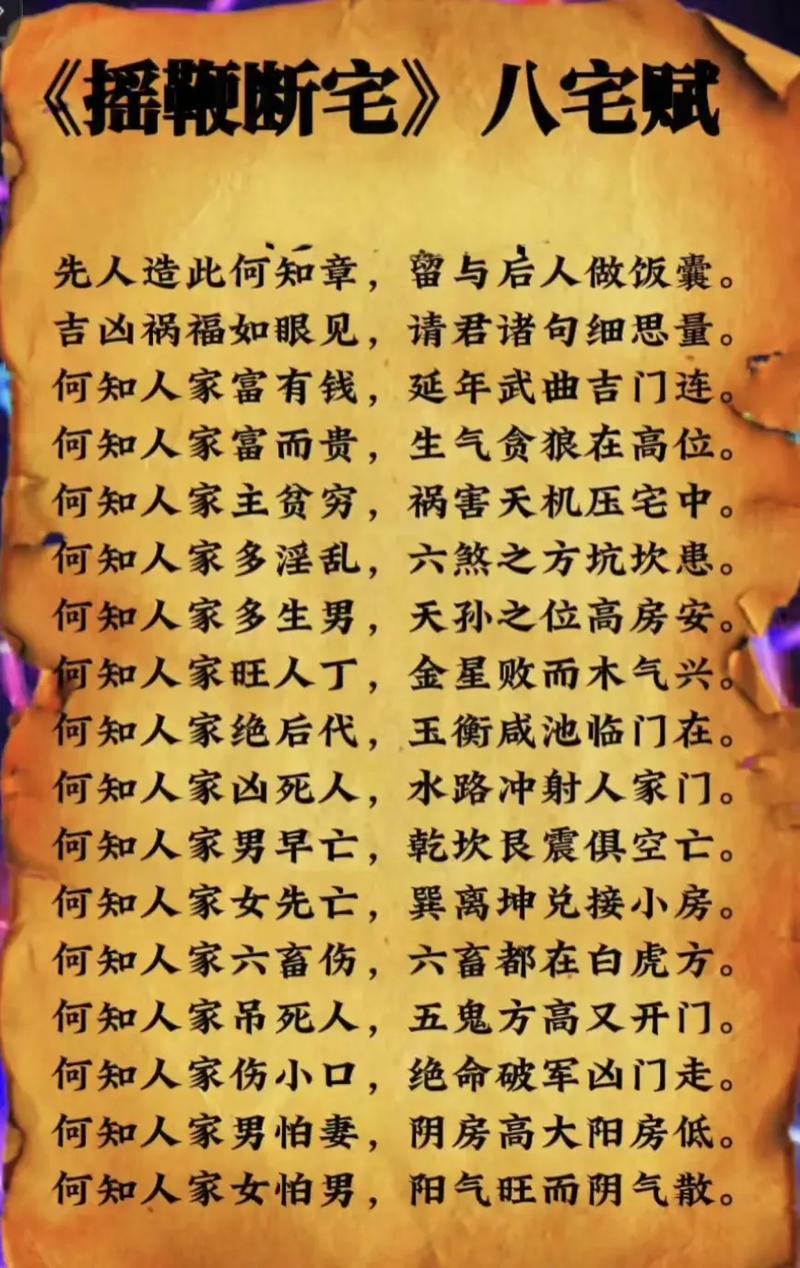 《摇鞭断宅》八宅赋
先人造此何知章，留与后人做饭囊。
吉凶祸福如眼见，请君诸句细思量。
何知人家富有钱，延年武曲吉门连。
何知人家富而贵，生气贪狼在高位。
何知人家主贫穷，祸害天机压宅中。
何知人家多淫乱，六煞之方坑坎患。
何知人家多生男，天孙之位高房安。
何知人家旺人丁，金星败而木气兴。
何知人家绝后代，玉衡咸池临门在。
何知人家凶死人，水路冲射人家门。
何知人家男早亡，乾坎艮震俱空亡。
何知人家女先亡，巽离坤兑接小房。
何知人家六畜伤，六畜都在白虎方。
何知人家吊死人，五鬼方高又开门。
何知人家伤小口，绝命破军凶门走。
何知人家男怕妻，阴房高大阳房低。
何知人家女怕男，阳气旺而阴气散。